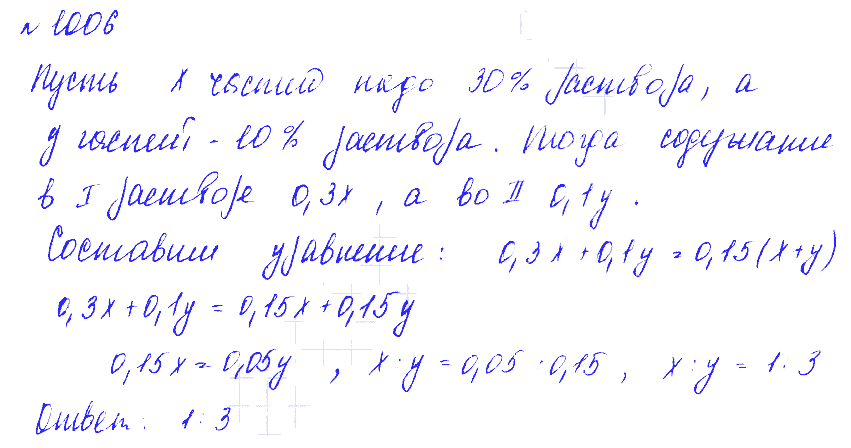 № 1006
Пусть x частей надо 30% раствора, а
y частей - 10% раствора. Тогда содержание
в I растворе 0,3x, а во II 0,1y.
Составим уравнение: 0,3x+0,1y=0,15(x+y)
0,3x+0,1y=0,15x+0,15y
0,15x=0,05y, x:y=0,05:0,15, x:y=1:3
Ответ: 1:3